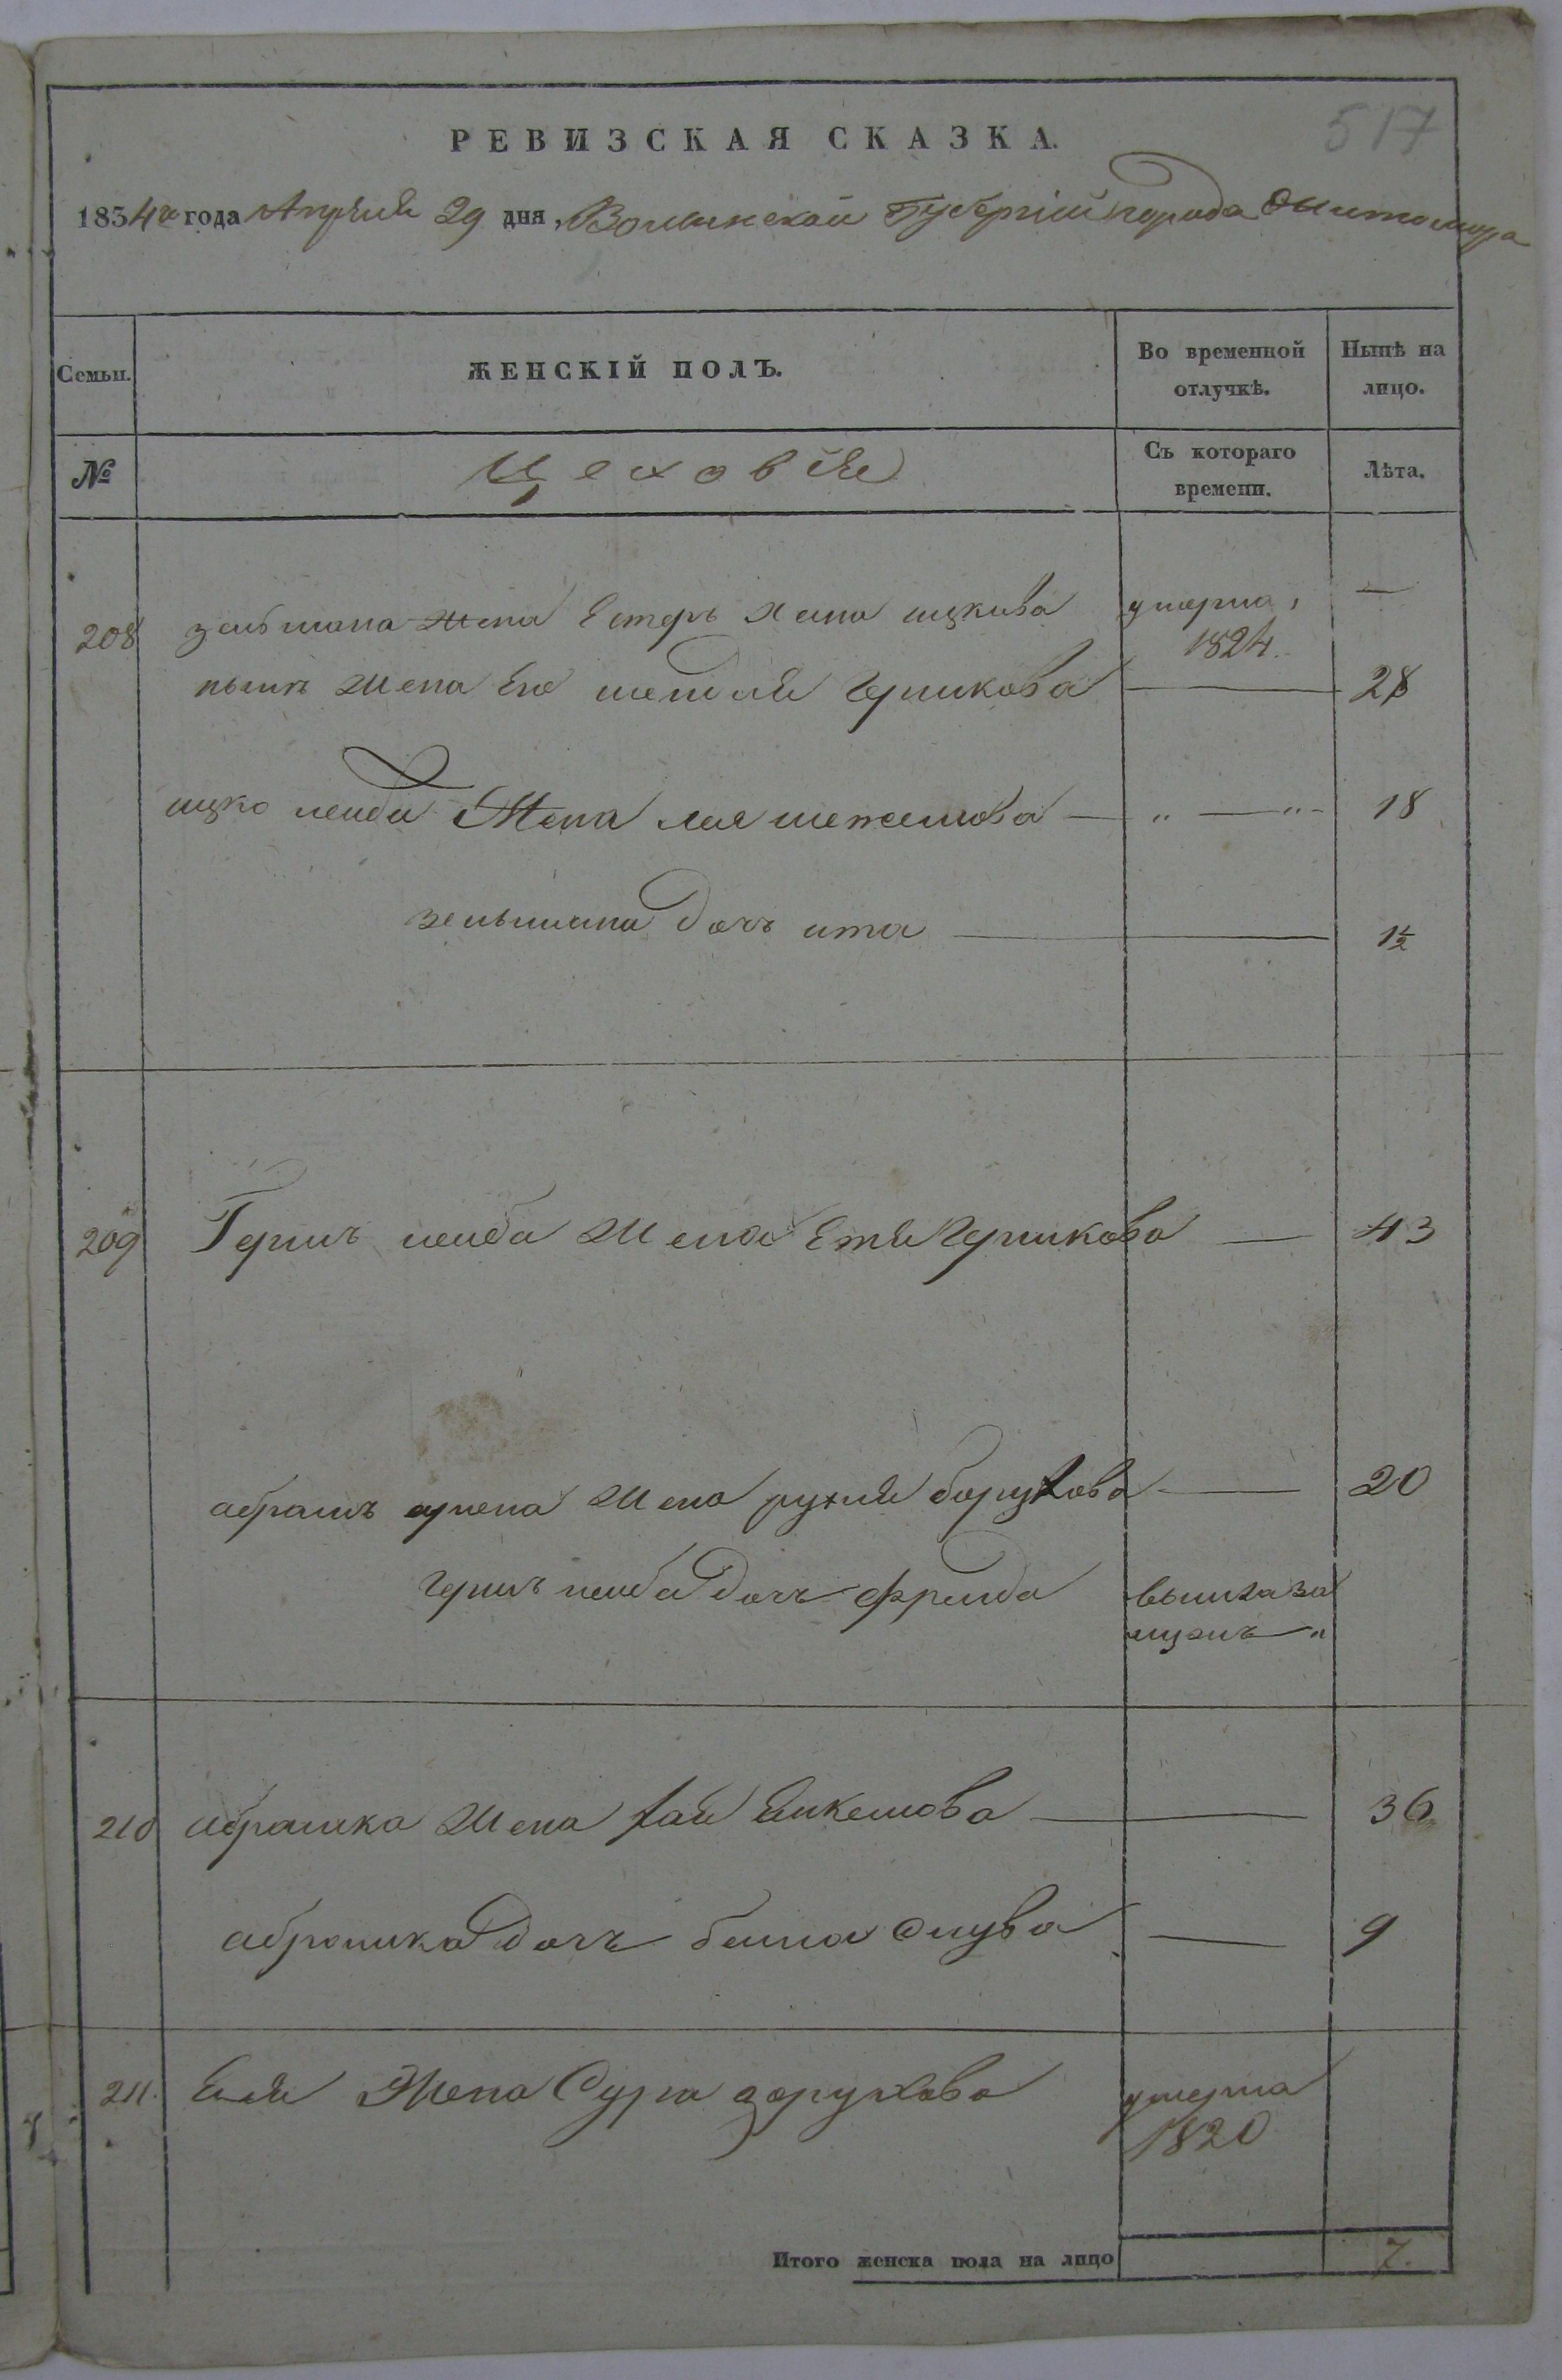 517
РЕВИЗСКАЯ СКАЗКА.
1834го года Апреля 29 дня, Волынской Губернии города Житомира
Семьи. ЖЕНСКІЙ ПОЛЪ. Во временной отлучкѣ. Нынѣ на лицо.
№ Цеховые Съ котораго времени. Лѣта.
208 зельмана жена Естеръ Хана ицкова умерла 1824 —
жена Его Гершкова — 28
ицко лейбы Жена лея — " — " 18
зельмана дочь ита — 1½
209 Гершъ лейба Жена Етя Гершкова — 43
абрамъ Жена рухля борухова — 20
Гершъ лейба дочь фрейда вышла за мужъ "
210 абрамка Жена хая Янкелиова — 36
абрамка дочь — 9
211. Еля Жена Сура зорухова умерла 1820
Итого женска пола на лицо 7.